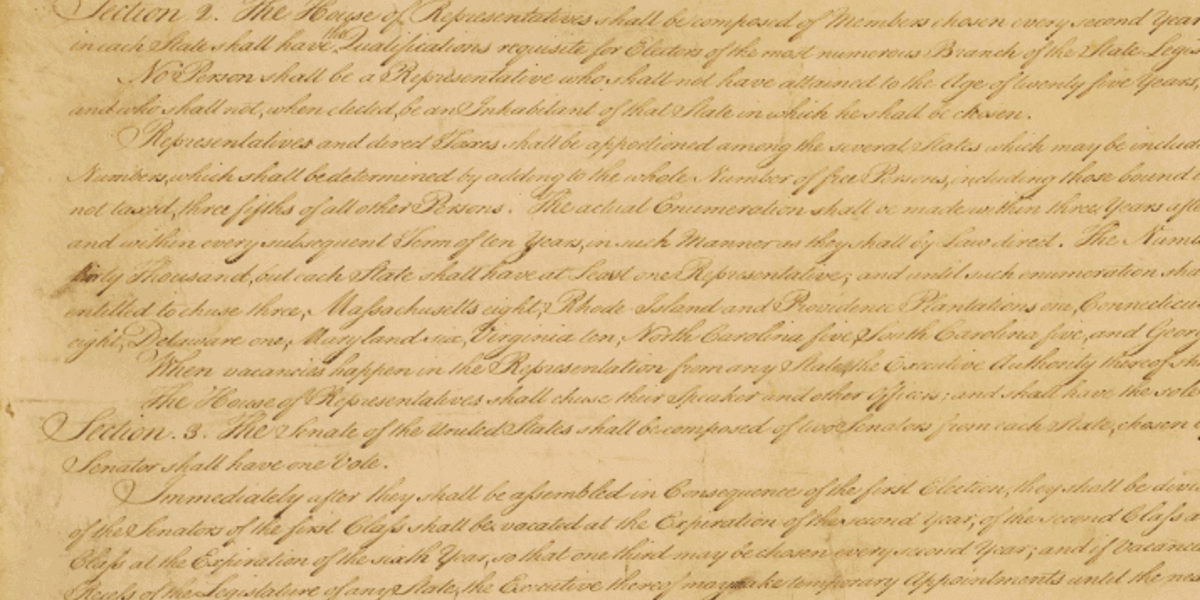 Section 2. The House of Representatives shall be composed of Members chosen every second Year
in each State shall have the Qualifications requisite for Electors of the most numerous Branch of the State Legis
No Person shall be a Representative who shall not have attained to the Age of twenty five Years,
and who shall not, when elected, be an Inhabitant of that State in which he shall be chosen.
Representatives and direct Taxes shall be apportioned among the several States which may be includ
Numbers, which shall be determined by adding to the whole Number of free Persons, including those bound
not taxed, three fifths of all other Persons. The actual Enumeration shall be made within three Years aft
and within every subsequent Term of ten Years, in such Manner as they shall by Law direct. The Num
thirty Thousand, but each State shall have at Least one Representative; and until such enumeration sha
entitled to chuse three, Massachusetts eight, Rhode Island and Providence Plantations one, Connecticu
eight, Delaware one, Maryland six, Virginia ten, North Carolina five, South Carolina five, and Geor
When vacancies happen in the Representation from any State, the Executive Authority thereof sh
The House of Representatives shall chuse their Speaker and other Officers; and shall have the sole
Section. 3. The Senate of the United States shall be composed of two Senators from each State, chosen
Senator shall have one Vote.
Immediately after they shall be assembled in Consequence of the first Election, they shall be divi
of the Senators of the first Class shall be vacated at the Expiration of the second Year, of the second Class a
Class at the Expiration of the sixth Year, so that one third may be chosen every second Year; and if Vacanc
Recess of the Legislature of any State, the Executive thereof may make temporary Appointments until the nex